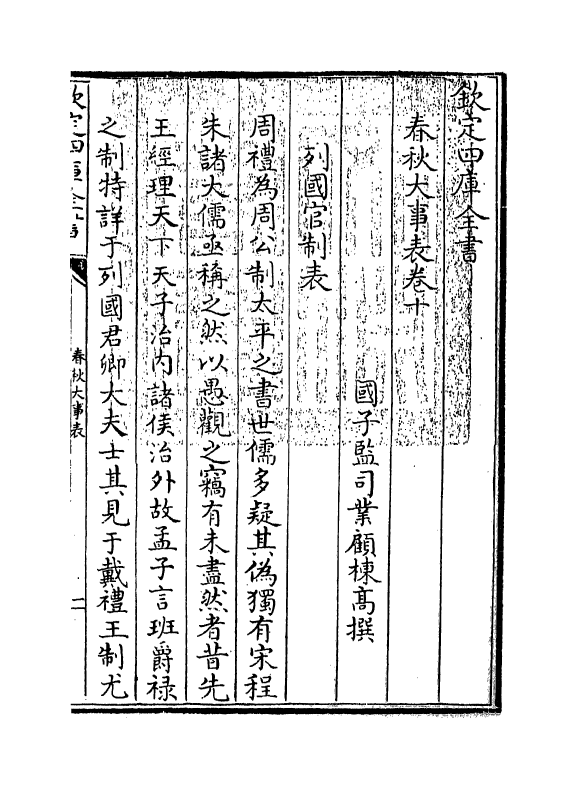 欽定四庫全書
春秋大事表卷十
國子監司業顧棟高撰
列國官制表
周禮為周公制太平之書世儒多疑其偽獨有宋程
朱諸大儒亟稱之然以愚觀之竊有未盡然者昔先
王經理天下天子治内諸侯治外故孟子言班爵禄
之制特詳于列國君卿大夫士其見于戴禮王制尤
欽定四庫全書
春秋大事表